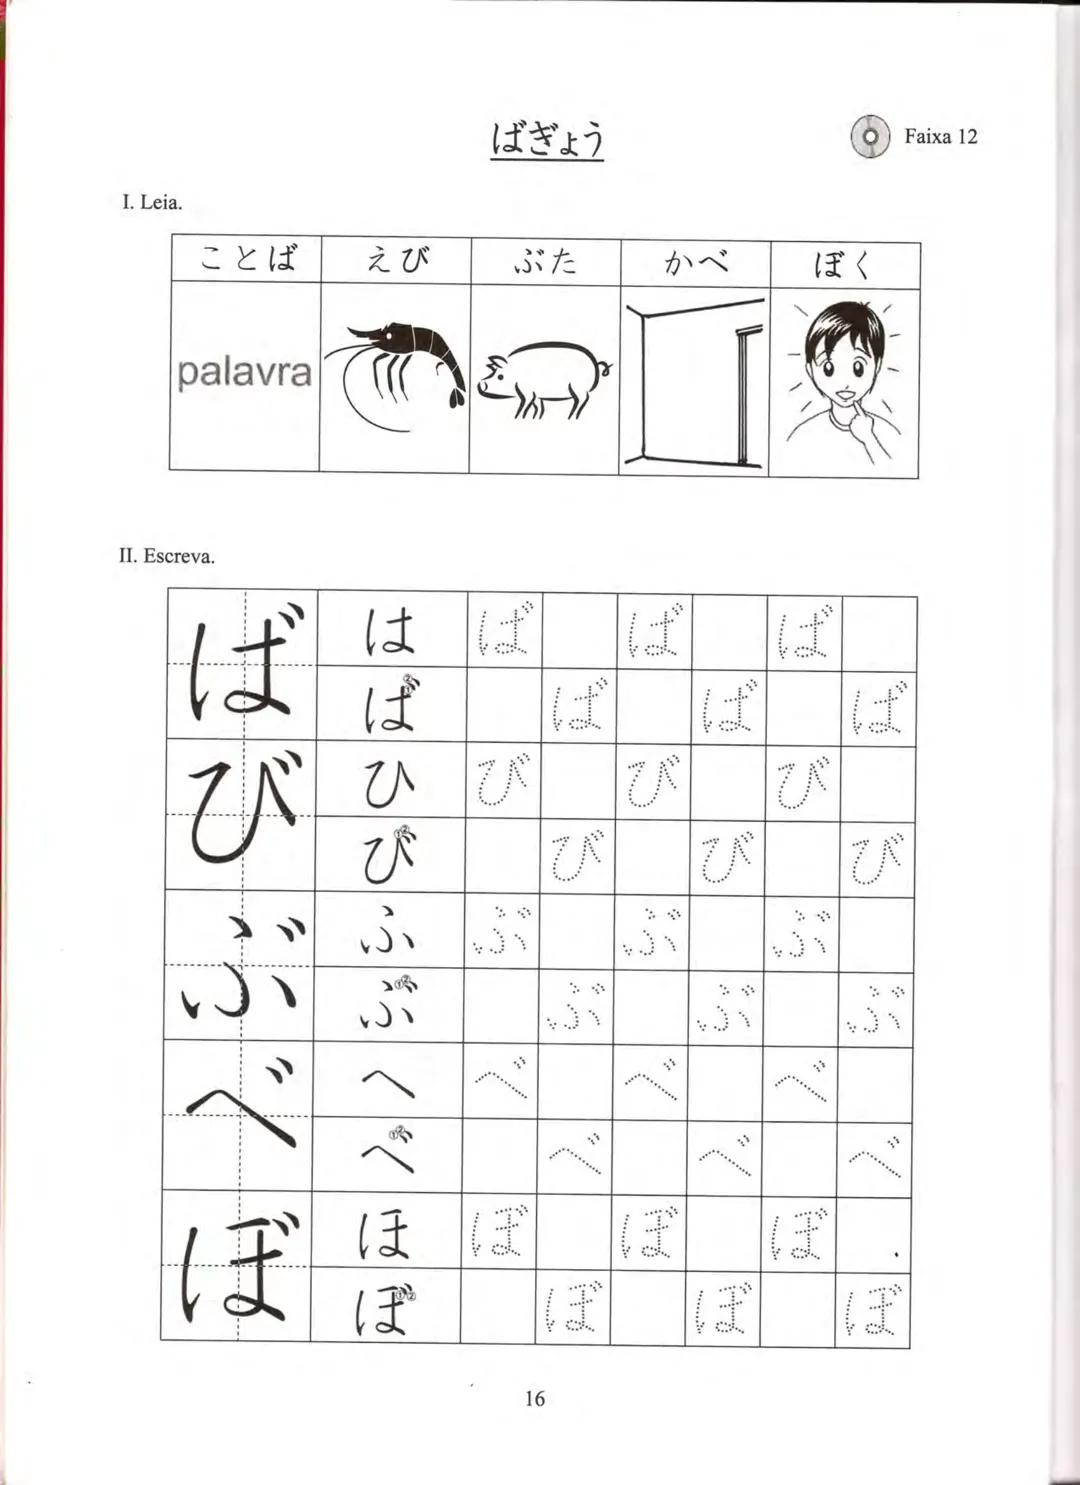 ばぎょう
Faixa 12
I. Leia.
ことば えび ぶた かべ ぼく
palavra
II. Escreva.
ば は ば ば ば
ば ② ① ば ば ば
び ひ び び び
び ① ② び び び
ぶ ふ ぶ ぶ ぶ
ぶ ① ② ぶ ぶ ぶ
べ へ べ べ べ
べ ① ② べ べ べ
ぼ ほ ぼ ぼ ぼ
ぼ ① ② ぼ ぼ ぼ
16